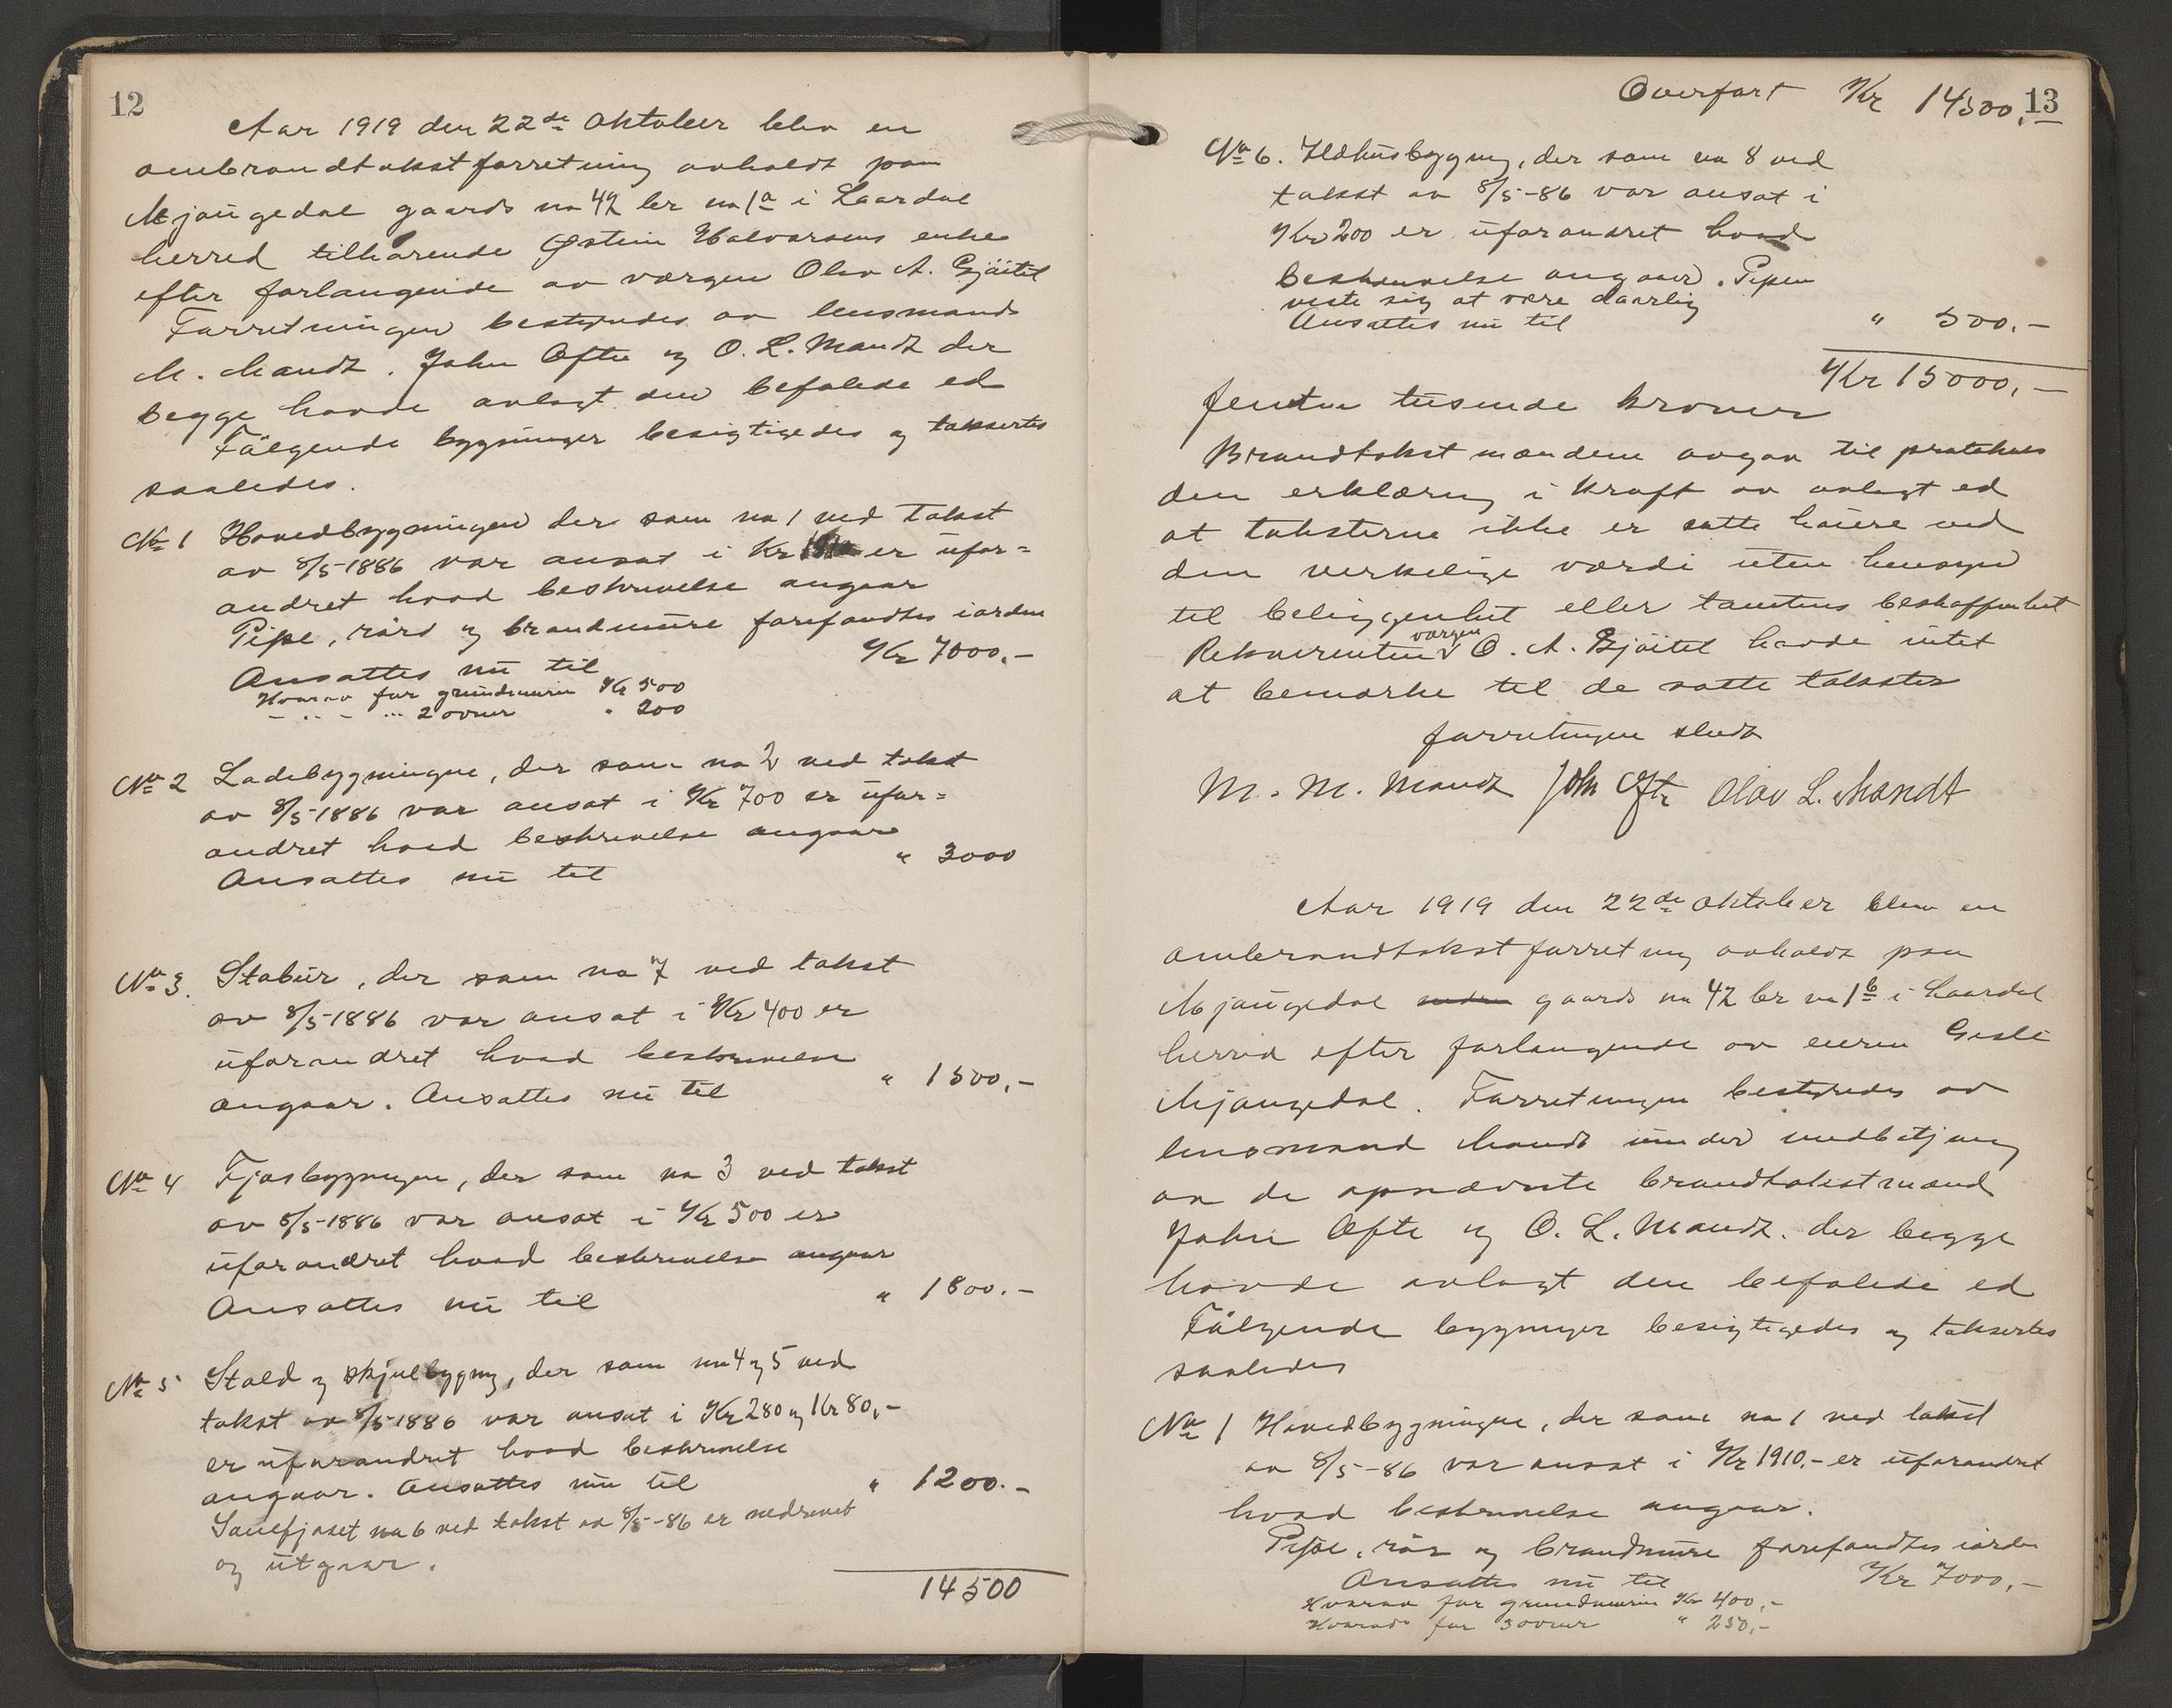 12
Aar 1919 den 22de oktober blev en
ombrandtakstforretning avholdt paa
Mjaugedal gaards no 42 br no 1a i Laardal
herred tilhørende Østein Halvorsens enke
efter forlangende av værgen Olav A. Gjøitil
Forretningen bestyredes av lensmand
M. Mandt. John Ofte og O. L. Mandt der
begge havde avlagt den befalede ed
Følgende bygninger besigtigedes og taksertes
saaledes.
No 1 Hovedbygningen der som no 1 ved takst
av 8/5-1886 var ansat i Kr er ufor=
andret hvad beskrivelse angaar
Pipe, rørs og brandmure forefandtes iorden
Ansattes nu til Kr 7000.-
Hvorav for grundmurin Kr 500
- .. - ... 2 ovner " 200
No 2 Ladebygningne, der som no 2 ved takst
av 8/5-1886 var ansat i Kr 700 er ufor=
andret hvad beskrivelse angaar
Ansattes nu til " 3000
No 3. Stabur, der som no 7 ved takst
av 8/5-1886 var ansat i Kr 400 er
uforandret hvad beskrivelse
angaar. Ansattes nu til " 1500.-
No 4 Fjøsbygningen, der som no 3 ved takst
av 8/5-1886 var ansat i Kr 500 er
uforandret hvad beskrivelse angaar
Ansattes nu til " 1800.-
No 5 Stald og skjulbygning, der som no 4 og 5 ved
takst av 8/5-1886 var ansat i Kr 280 og Kr 80,-
er uforandret hvad beskrivelse
angaar. Ansattes nu til " 1200.-
Sauefjøset no 6 ved takst av 8/5-86 er nedrevet
og utgaar.
14500
Overført Kr 14500,- 13
No 6. Ildhusbygning, der som no 8 ved
takst av 8/5-86 var ansat i
Kr 200 er uforandret hvad
beskrivelse angaar. Pipen
viste sig at være daarlig
Ansattes nu til " 500.-
Kr 15000,-
femten tusende kroner
Brandtakstmændene avgav til protokols
den erklæring i kraft av avlagt ed
at taksterne ikke er satte høiere end
den verkelige værdi uten hensyn
til beliggenhet eller tomtens beskaffenhet
Rekvirenten værgen O. A. Gjøitil havde intet
at bemærke til de satte takster
forretningen sludt
M. M. Mandt John Ofte Olav L. Mandt
Aar 1919 den 22de oktober blev en
ombrandtakstforretning avholdt paa
Mjaugedal gaards no 42 br no 1b i Laardal
herred efter forlangende av eieren Gisle
Mjaugedal. Forretningen bestyredes av
lensmand Mandt under medbetjening
av de opnævnte brandtakstmænd
John Ofte og O. L. Mandt. der begge
havde avlagt den befalede ed
Følgende bygninger besigtigedes og taksertes
saaledes
No 1 Hovedbygningne, der som no 1 ved takst
av 8/5-86 var ansat i Kr 1910.- er uforandret
hvad beskrivelse angaar.
Pipe, rør og brandmure forefandtes iorden
Ansattes nu til Kr 7000,-
Hvorav for grundmurin Kr 400,-
Hvorav for 3 ovner " 250,-